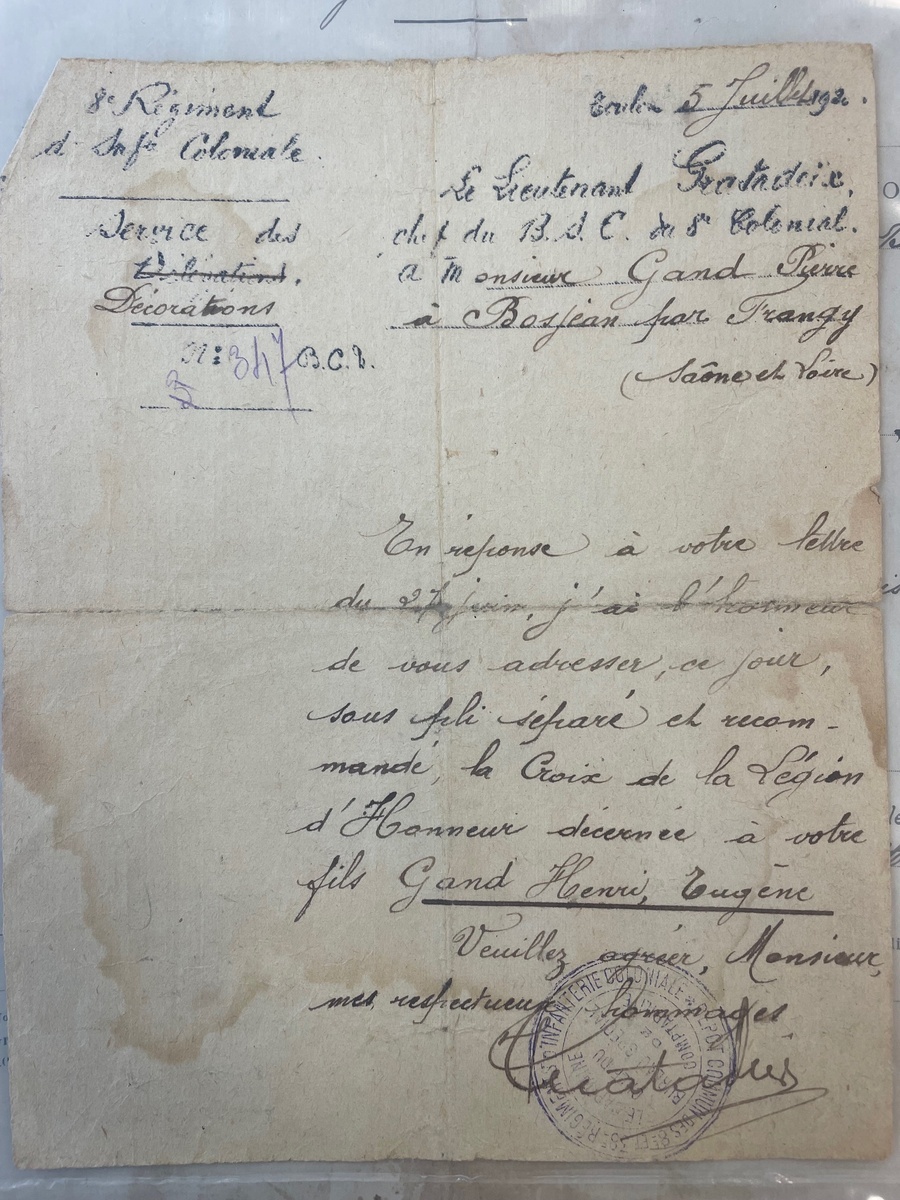 8e Régiment
d'Infie Coloniale.
Service des
Décorations
N°: 347 B.C.D.
Toulon 5 Juillet 192 .
Le Lieutenant
chef du B.S.C. du 8e Colonial.
a Monsieur Gand Pierre
à Bosjean par Frangy
(Saône et Loire)
En réponse à votre lettre
du 27 juin, j'ai l'honneur
de vous adresser, ce jour,
sous pli séparé et recom-
mandé, la Croix de la Légion
d'Honneur décernée à votre
fils Gand Henri, Eugène
Veuillez agréer, Monsieur,
mes respectueux hommages
REGIMENTS D'INFANTERIE COLONIALE * DEPOT COMMUN DES 8e ET
BUREAU SPECIAL DE COMPTABILITE
LE DU